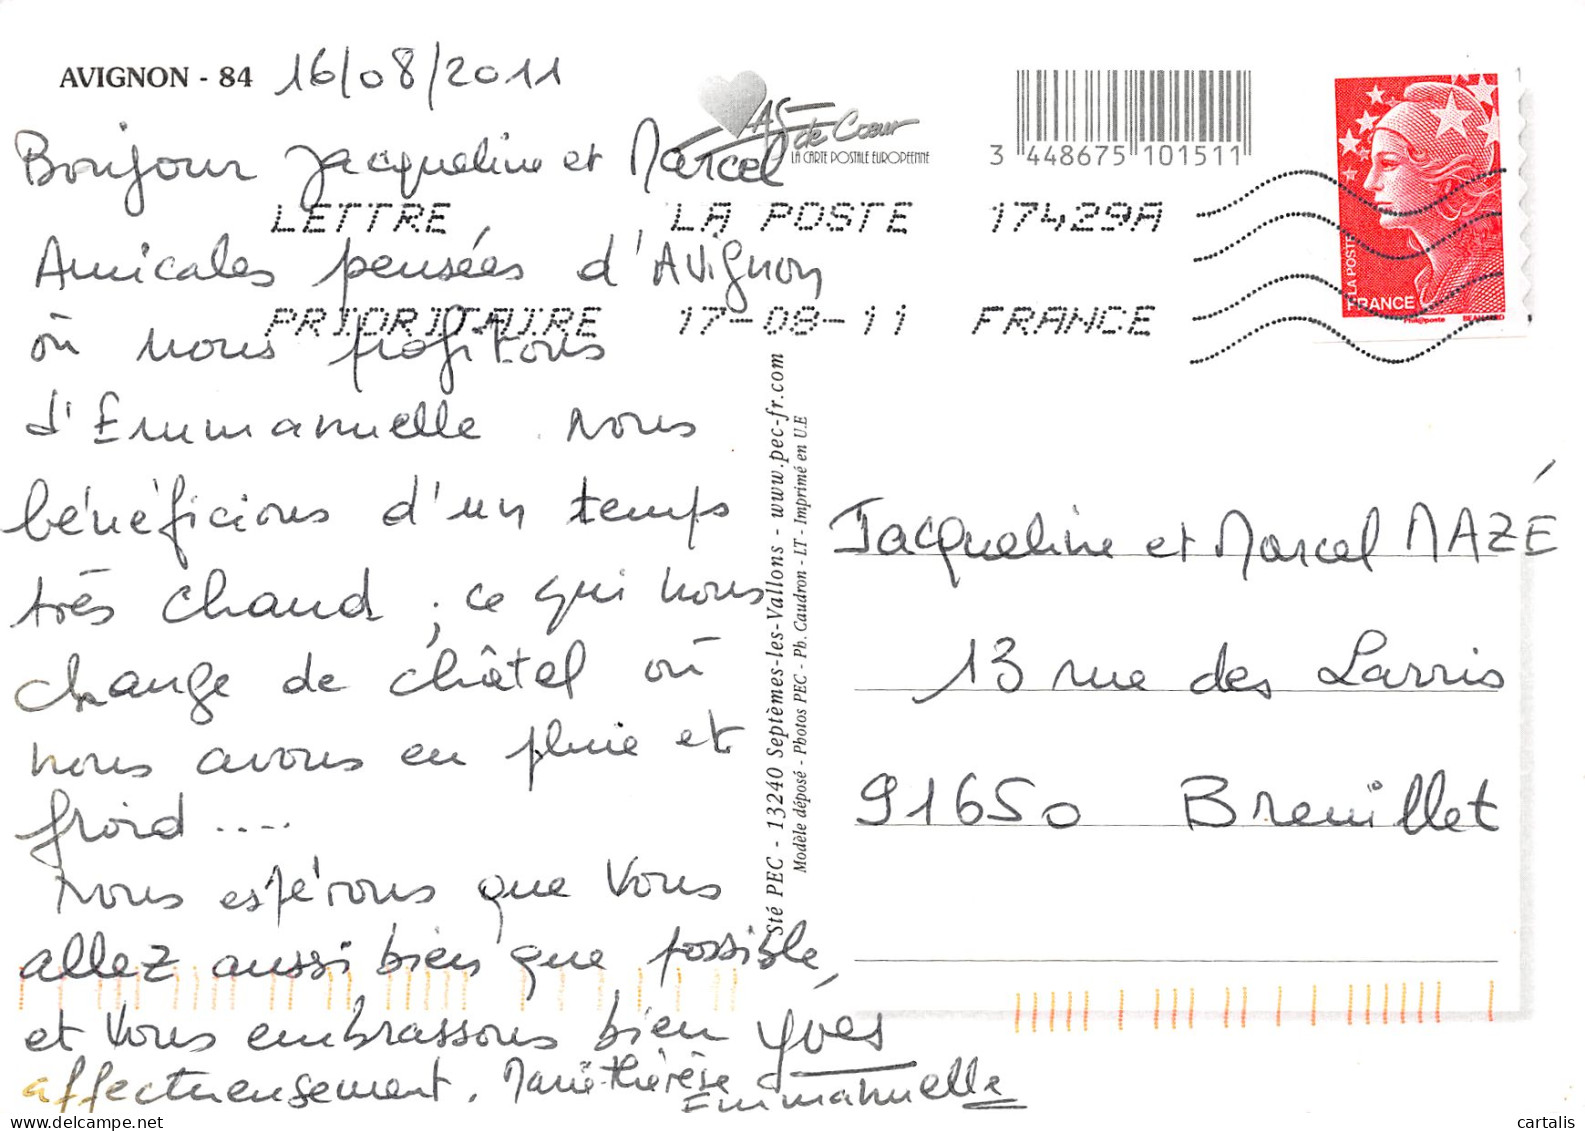 AVIGNON - 84 16/08/2011
Bonjour Jacqueline et Marcel
Amicales pensées d'Avignon
où nous profitons
d'Emmanuelle. Nous
bénéficions d'un temps
très chaud ; ce qui nous
change de Châtel où
nous avons eu pluie et
froid ....
Nous espérons que vous
allez aussi bien que possible,
et vous embrassons bien
affectueusement. Marie-thérèse
Yves
Emmanuelle
AS de Cœur
LA CARTE POSTALE EUROPEENNE
3 448675 101511
LETTRE LA POSTE 17429A
PRIORITAIRE 17-08-11 FRANCE
LA POSTE
FRANCE
Phil@poste BEAUJARD
Sté PEC - 13240 Septèmes-les-Vallons - www.pec-fr.com
Modèle déposé - Photos PEC - Ph. Caudron - LT - Imprimé en U.E
Jacqueline et Marcel MAZÉ
13 rue des Larris
91650 Breuillet
cartalis